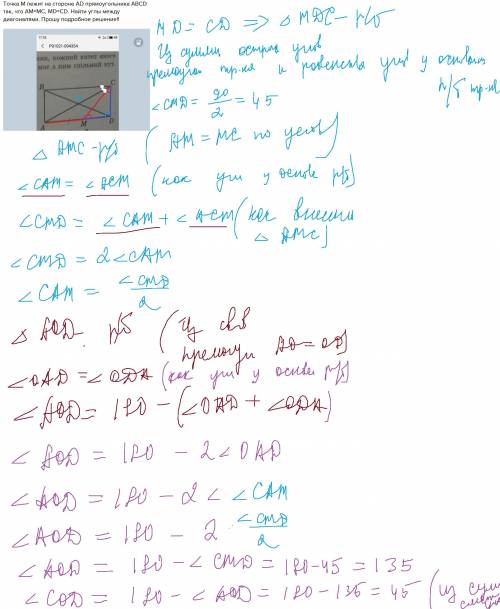 Точка М лежит на стороне AD прямоугольника ABCD
так, что AM=MC, MD=CD. Найти углы между
диагоналями. Прошу подробное решение!!
MD = CD => △ MDC - р/б
Из суммы острых углов
и равенства углов у основан
р/б тр-ка
∠CMD = 90/2 = 45
△ AMC - р/б (AM = MC по услов)
∠CAM = ∠ACM (как угли у основ р/б)
∠CMD = ∠CAM + ∠ACM (как внешни
△ AMC)
∠CMD = 2∠CAM
∠CAM = ∠CMD/2
△ AOD р/б (Из св-в
AO = OD)
∠OAD = ∠ODA (как угли у основ р/б)
∠AOD = 180 - (∠OAD + ∠ODA)
∠AOD = 180 - 2∠OAD
∠AOD = 180 - 2∠ ∠CAM
∠AOD = 180 - 2 · ∠CMD/2
∠AOD = 180 - ∠CMD = 180-45 = 135
∠COD = 180 - ∠AOD = 180 - 135 = 45 (из сум